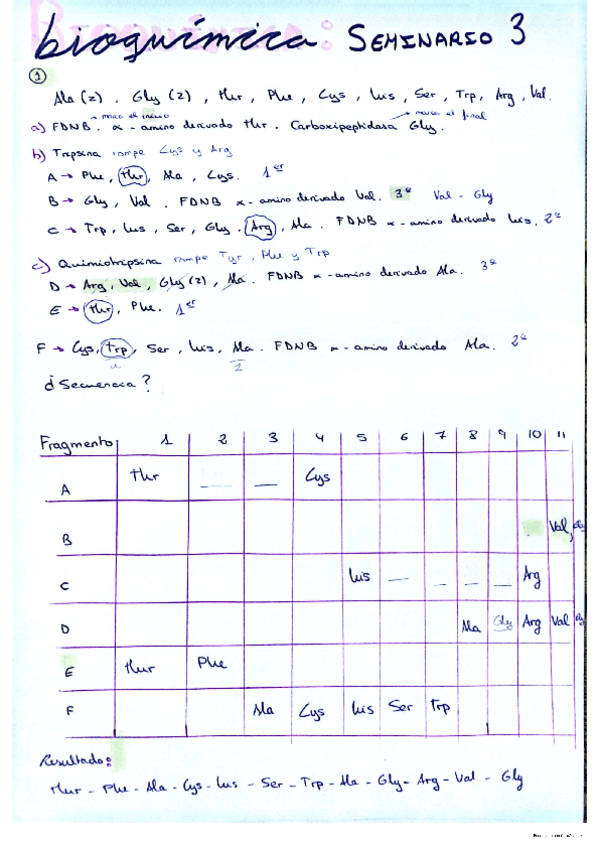 bioquímica: SEMINARIO 3
①
Ala (2). Gly (2), thr, Phe, Cys, his, Ser, Trp, Arg, Val.
marca el inicio marca el final
a) FDNB. α-amino derivado thr. Carboxipeptidasa Gly.
b) Tripsina rompe Cys y Arg
A → Phe, thr, Ala, Cys. 1er
B → Gly, Val. FDNB α-amino derivado Val. 3º Val - Gly
C → Trp, his, Ser, Gly, Arg, Ala. FDNB α-amino derivado his. 2º
c) Quimiotripsina rompe Tyr, Phe y Trp
D → Arg, Val, Gly (2), Ala. FDNB α-amino derivado Ala. 3º
E → thr, Phe. 1er
F → Cys, Trp, Ser, his, Ala. FDNB α-amino derivado Ala. 2º
¿Secuencia?
Fragmento 1 2 3 4 5 6 7 8 9 10 11
A thr __ __ Cys
B Val, Gly
C his _ _ _ _ Arg
D Ala Gly Arg Val Gly
E thr Phe
F Ala Cys his Ser Trp
Resultado:
thr - Phe - Ala - Cys - his - Ser - Trp - Ala - Gly - Arg - Val - Gly